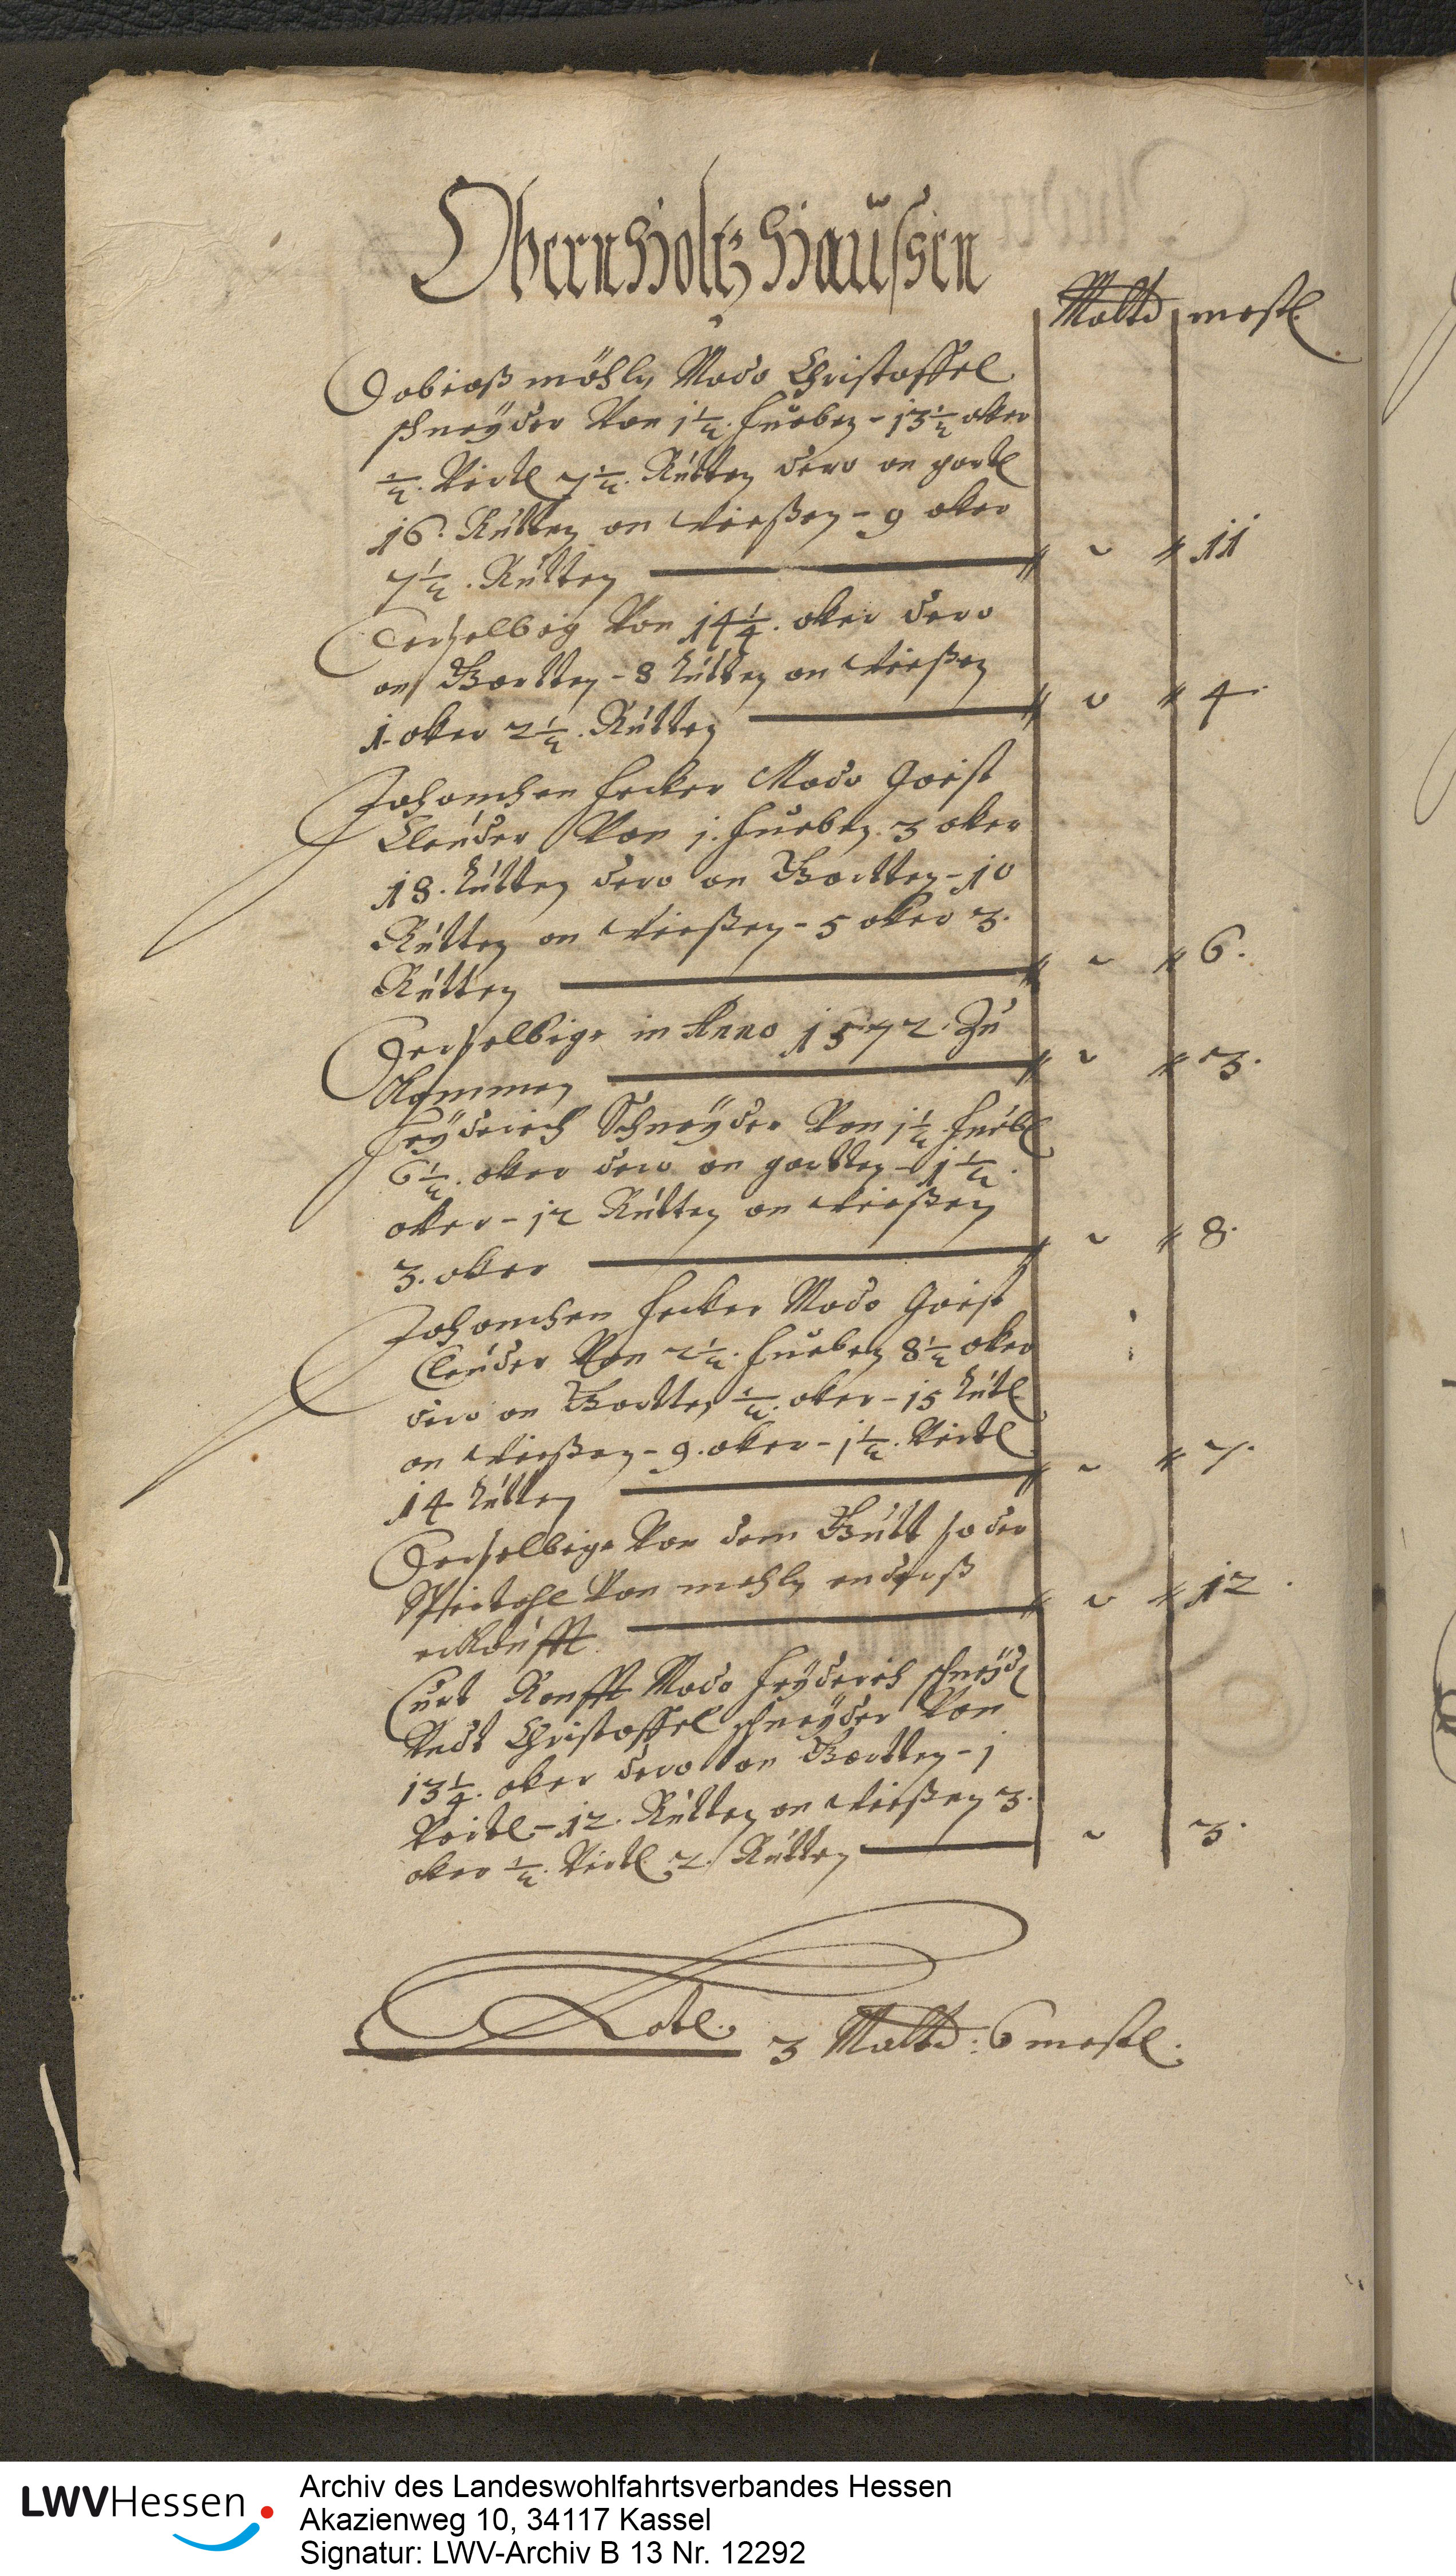 Obernholtzhaussen
Maltr mestl
Tobiaß möhln Modo Christoffel
schneyder Von 1½. hueben - 13½ aker
½. Virtl 7½. Rutten dero an gartl
16. Rutten an Wießen - 9 aker
7½. Rutten ~ 11
Derselbig Von 14¼. aker dero
an Gartten - 8 Rutten an Wießen
1. aker 2½. Rutten 0 4.
Johanchen Hecker Modo Joist
Cleuder Von 1. hueben. 3 aker
18. Rutten dero an Gartten - 10
Rutten an Wießen - 5 aker 3.
Rutten ~ 6.
Derselbige in Anno 1572. Zu
Kommen ~ 3.
Hyderich Schneyder Von 1½ huebl
6½. aker dero an gartten - 1½.
aker - 12 Rutten an Wießen
3. aker ~ 8.
Johanchen Hecker Modo Joist
Cleuder Von 2½. hueben 8½ aker
dero an Gartten ½. aker - 15 Rutl
an Wießen - 9. aker - 1½. Virtl
14 Rutten ~ 7.
Derselbige Von dem Gutt so der
Spitahl Von mehln anderß
erkaufft. 0 12.
Curt Krafft Modo Hyderich schneyd
Vndt Christoffel schneyder Von
13¼. aker dero an Gartten - 1
Virtl - 12. Rutten an Wießen 3.
aker ½. Virtl 2. Rutten ~ 3.
Latl. 3 Maltr: 6 mestl.
LWVHessen
Archiv des Landeswohlfahrtsverbandes Hessen
Akazienweg 10, 34117 Kassel
Signatur: LWV-Archiv B 13 Nr. 12292